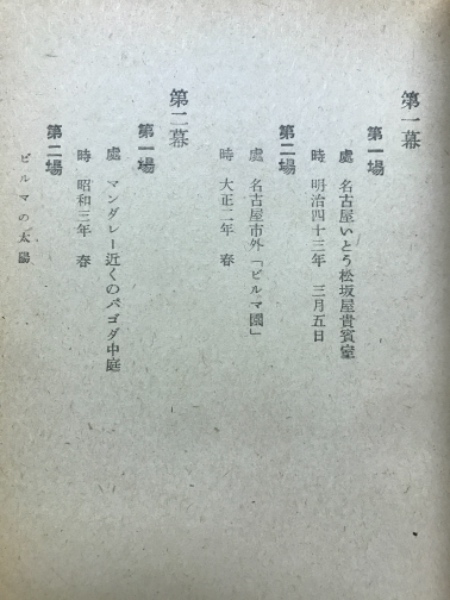 第一幕
第一場
處 名古屋いとう松坂屋貴賓室
時 明治四十三年 三月五日
第二場
處 名古屋市外「ビルマ園」
時 大正二年 春
第二幕
第一場
處 マンダレー近くのパゴダ中庭
時 昭和三年 春
第二場
ビルマの太陽